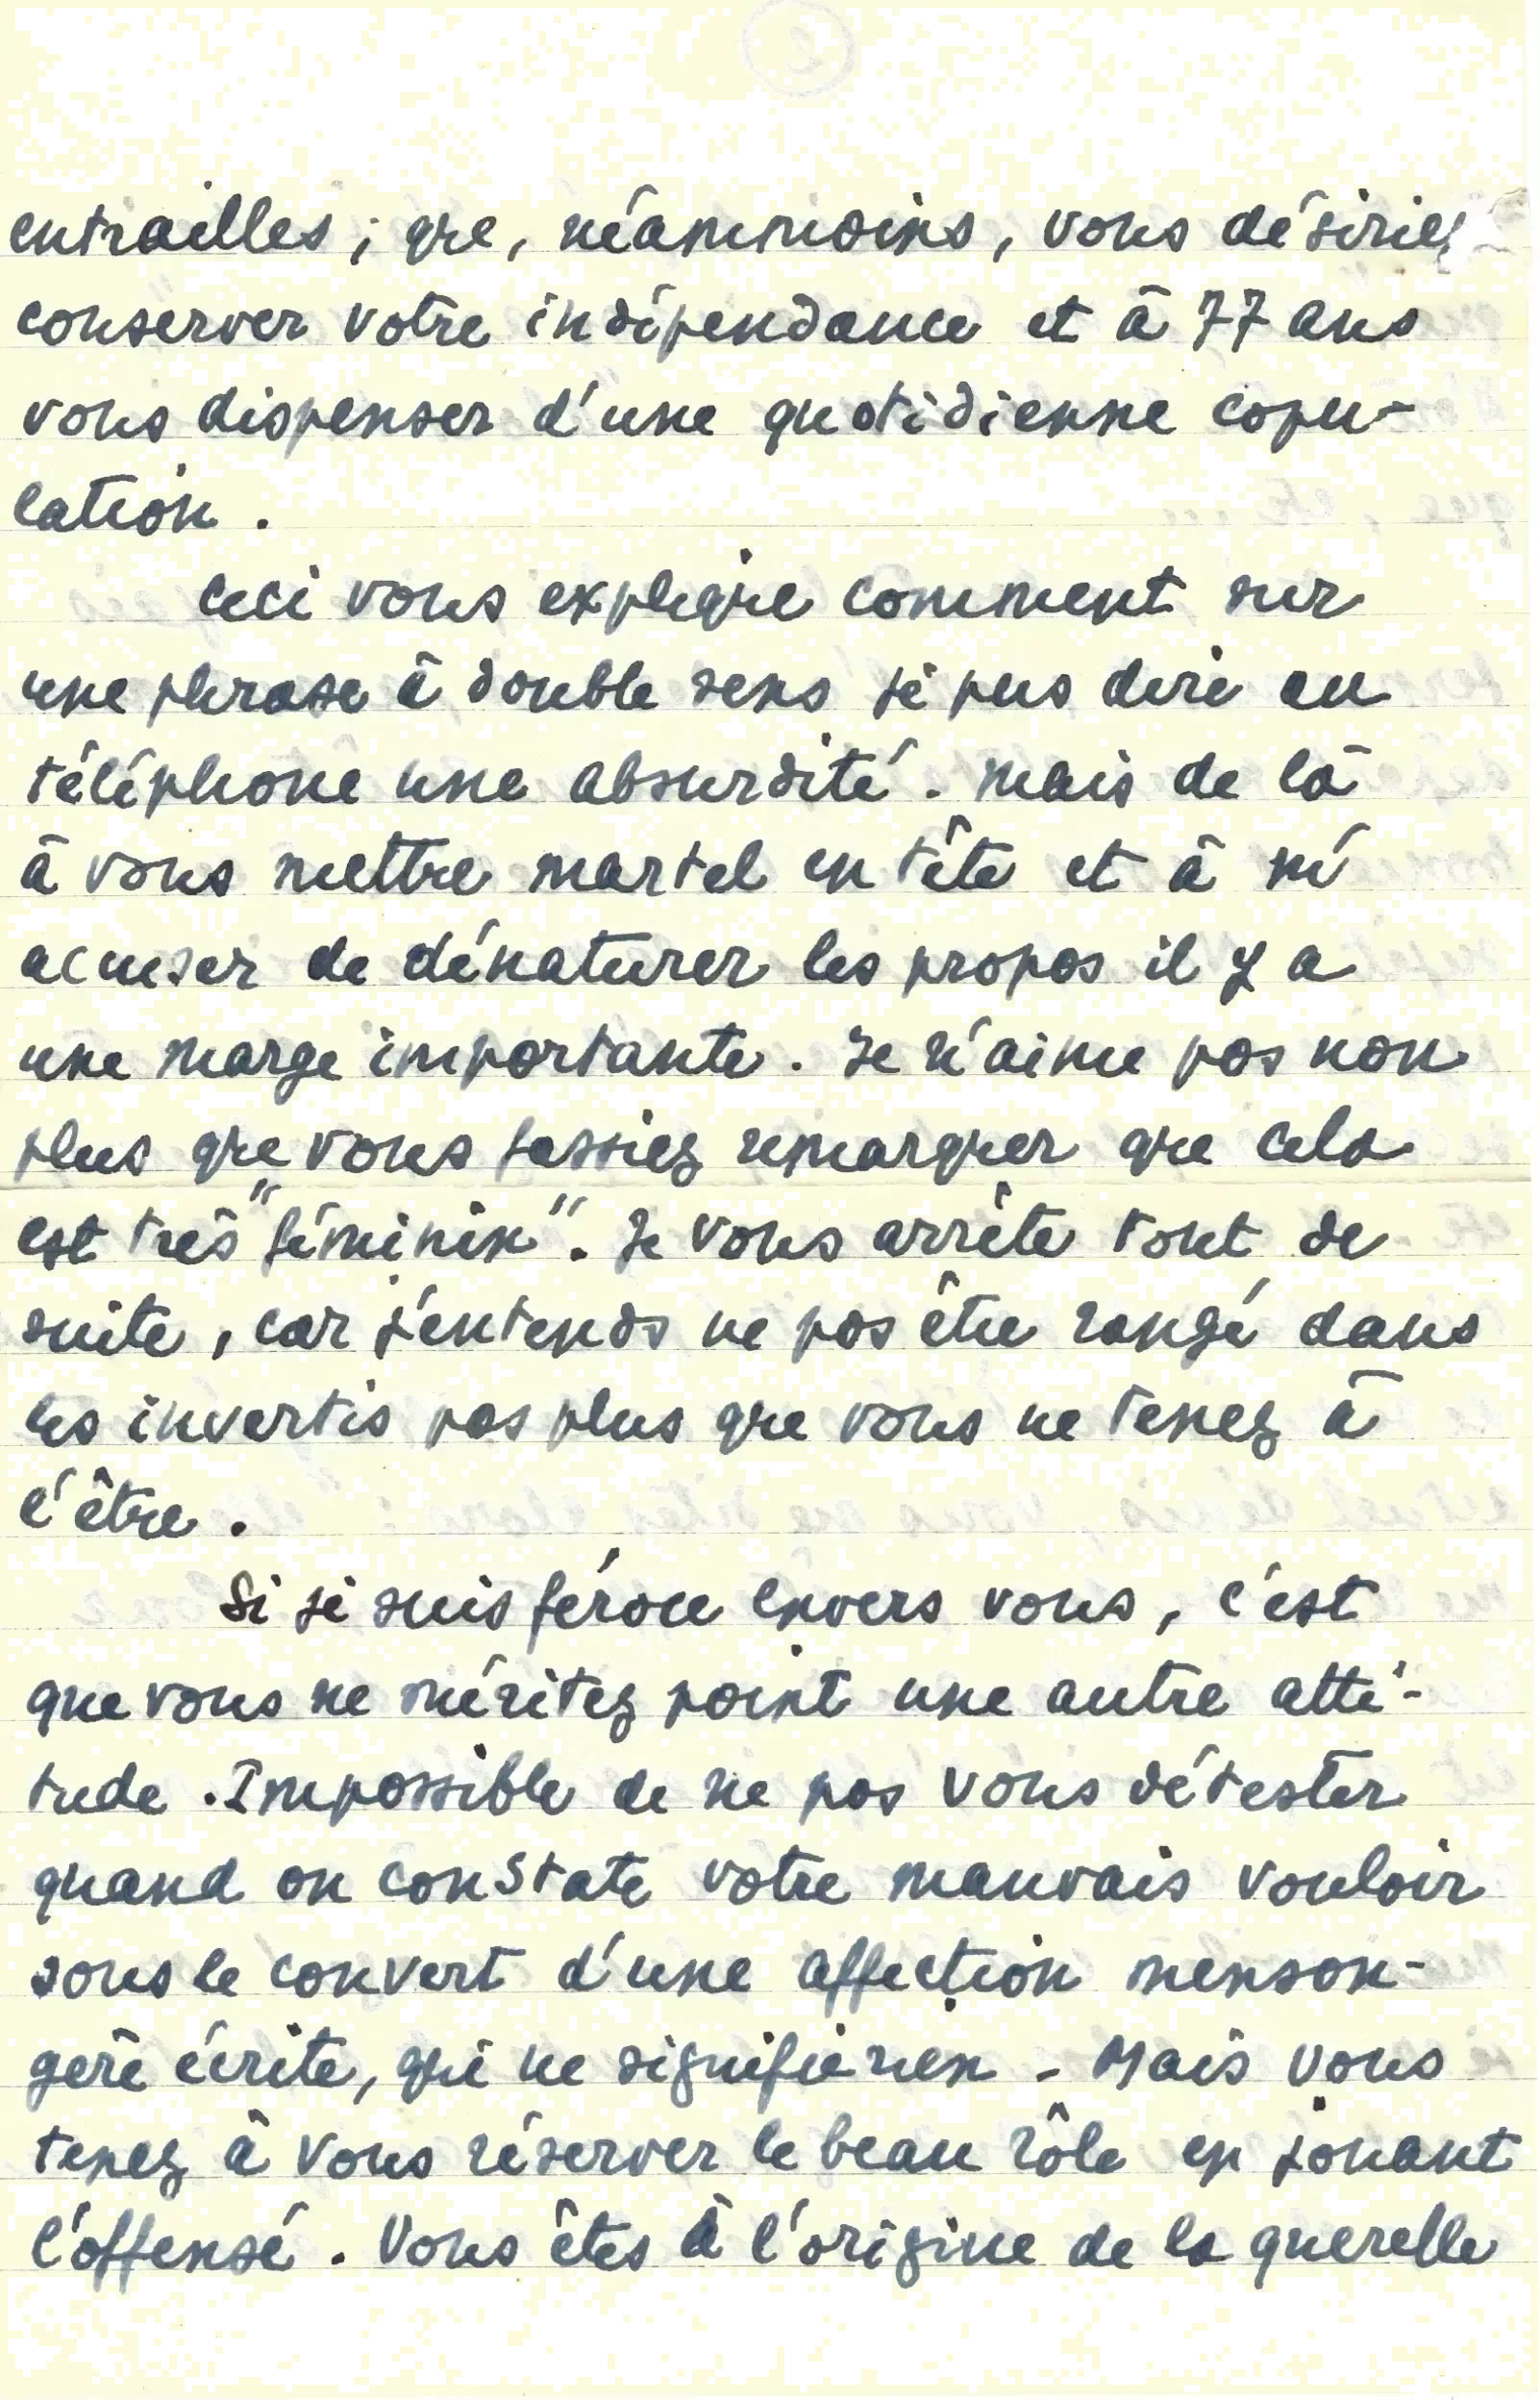 2
entrailles ; que, néanmoins, vous désiriez
conserver votre indépendance et à 77 ans
vous dispenser d'une quotidienne copu-
lation .
Ceci vous explique comment sur
une phrase à double sens je pus dire au
téléphone une absurdité . Mais de là
à vous mettre martel en tête et à m'
acuser de dénaturer les propos il y a
une marge importante . Je n'aime pas non
plus que vous fassiez remarquer que cela
est très "féminin" . Je vous arrête tout de
suite , car j'entends ne pas être rangé dans
les invertis pas plus que vous ne tenez à
l'être .
Si je suis féroce envers vous , c'est
que vous ne méritez point une autre atti-
tude . Impossible de ne pas vous détester
quand on constate votre mauvais vouloir
sous le couvert d'une affection menson-
gère écrite, qui ne signifie rien - Mais vous
tenez à vous réserver le beau rôle en jouant
l'offensé . Vous êtes à l'origine de la querelle